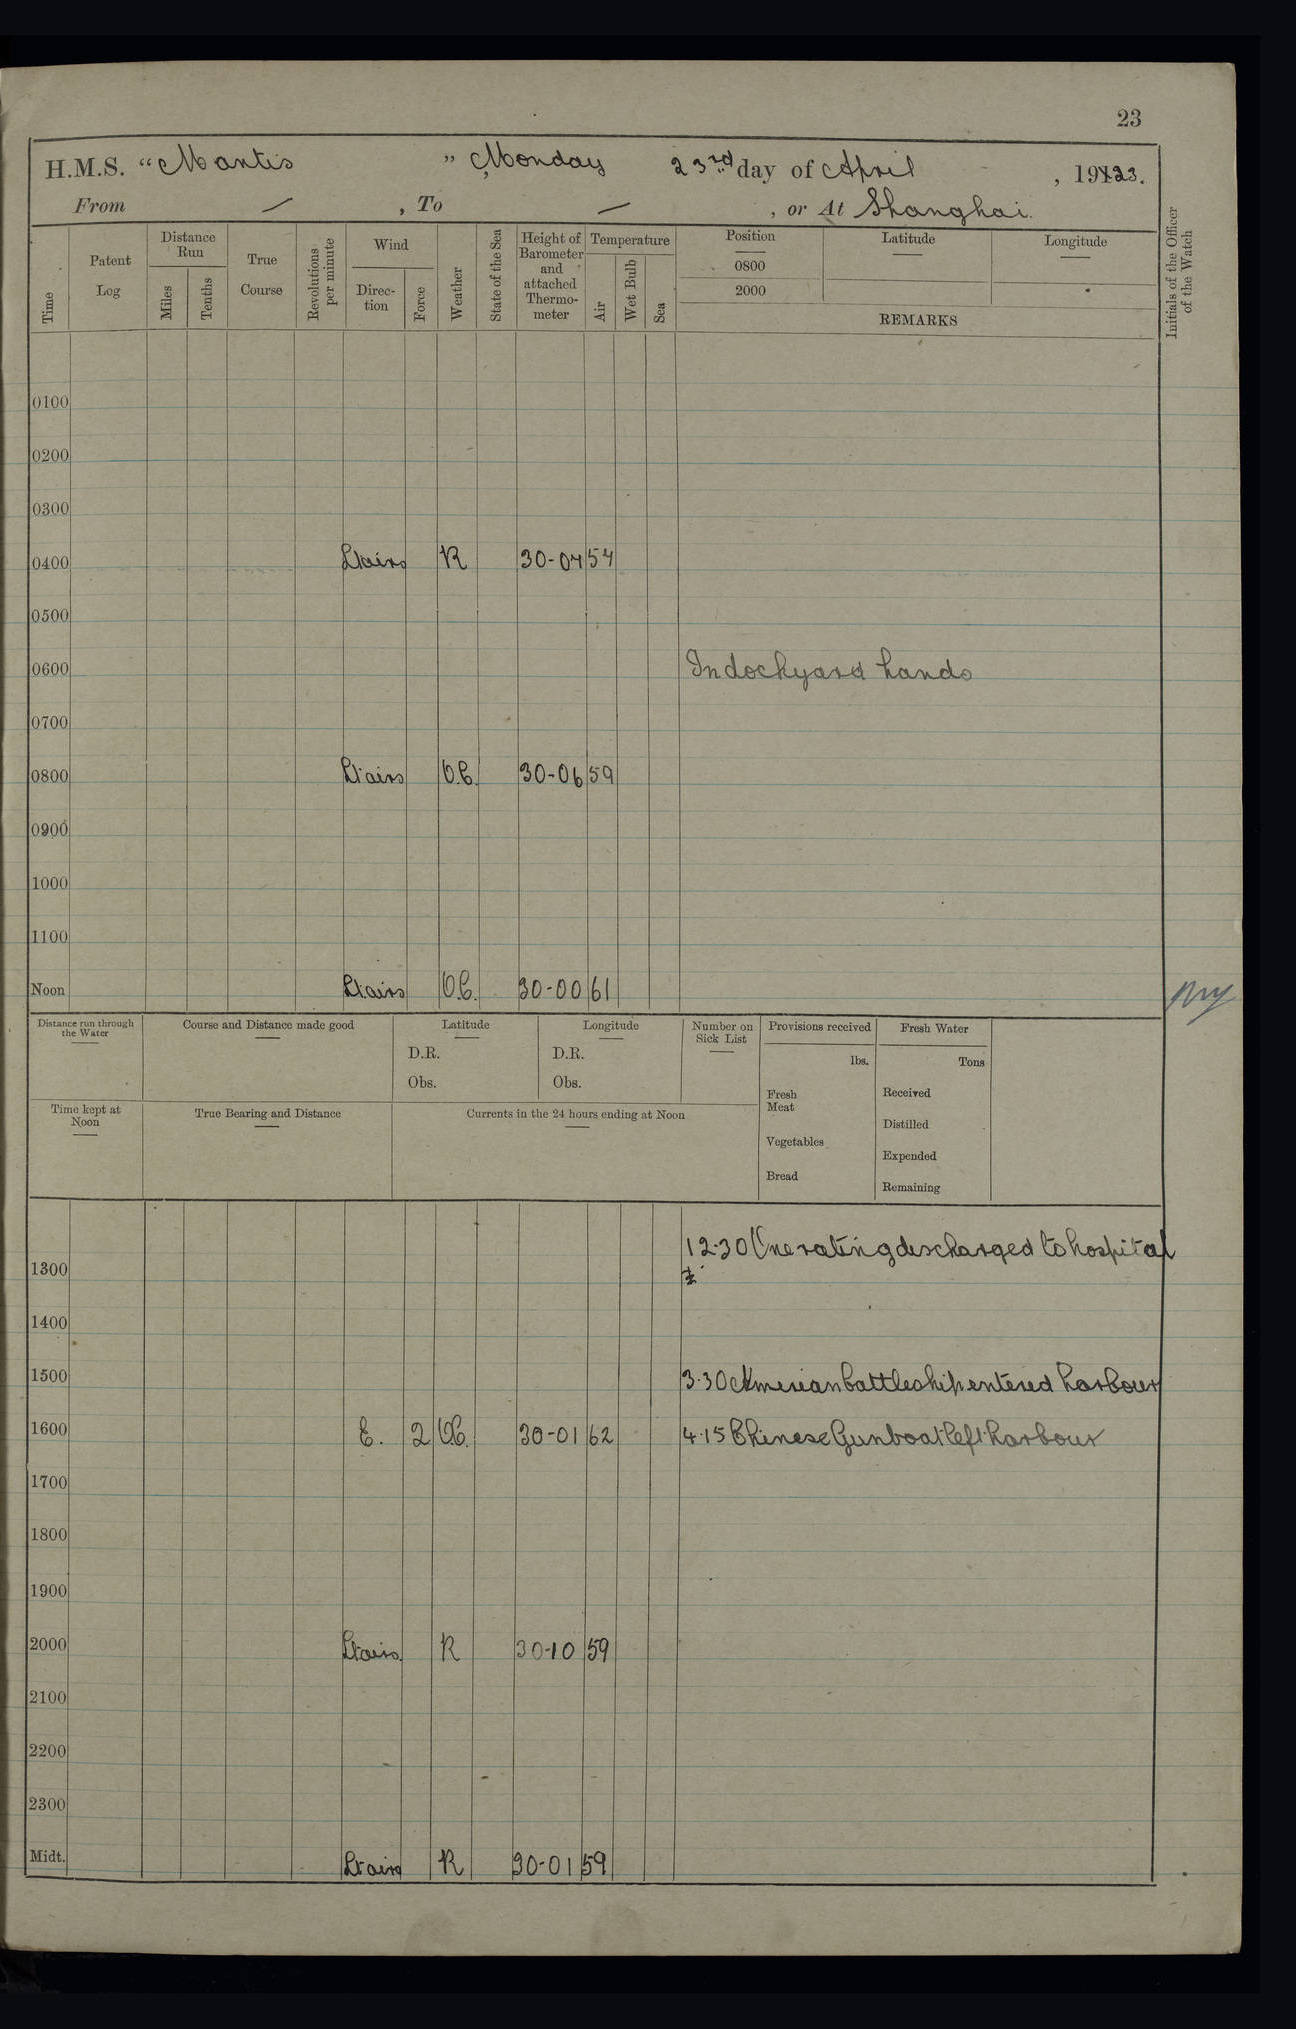 23
H.M.S. “Mantis ” Monday 23rd day of April , 1923.
From — , To — , or At Shanghai.
Time Patent Log Distance Run Miles Tenths True Course Revolutions per minute Wind Direc-tion Force Weather State of the Sea Height of Barometer and attached Thermo-meter Temperature Air Wet Bulb Sea Position 0800 2000 Latitude Longitude Initials of the Officer of the Watch
REMARKS
0100
0200
0300
0400 Lt airs R 30-04 54
0500
0600 In dockyard hands
0700
0800 Lt airs O.C. 30-06 59
0900
1000
1100
Noon Lt airs O.C. 30-00 61
Distance run through the Water Course and Distance made good Latitude D.R. Obs. Longitude D.R. Obs. Number on Sick List Provisions received lbs. Fresh Water Tons
Fresh Meat Received
Time kept at Noon True Bearing and Distance Currents in the 24 hours ending at Noon
Distilled
Vegetables
Expended
Bread
Remaining
12.30 One rating discharged to hospital
1300
1400
1500 3.30 Amerian battleship entered harbour
1600 E. 2 O.C. 30-01 62 4.15 Chinese Gunboat left harbour
1700
1800
1900
2000 Lt airs. R 30-10 59
2100
2200
2300
Midt. Lt airs R 30-01 59